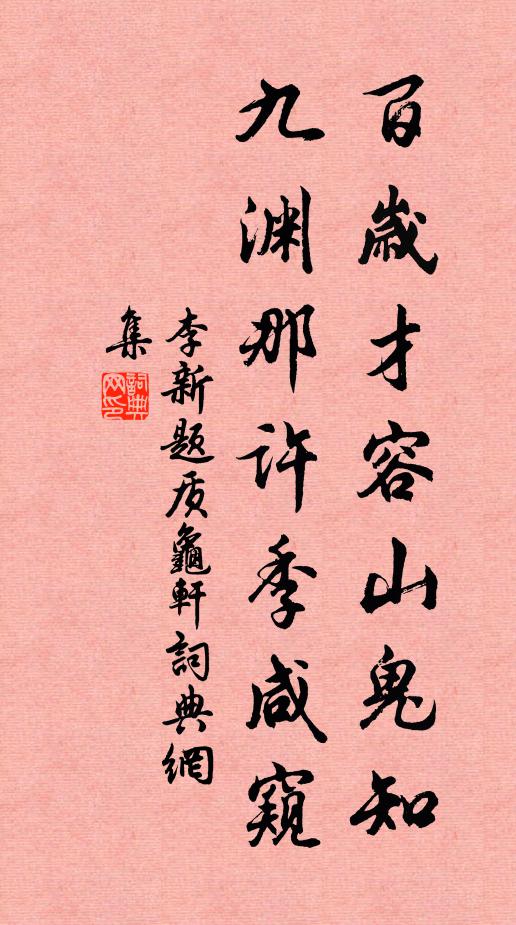 百歲才容山鬼知
九渊那許季咸窺
李新题质龜軒詞典網
集
詞典网印